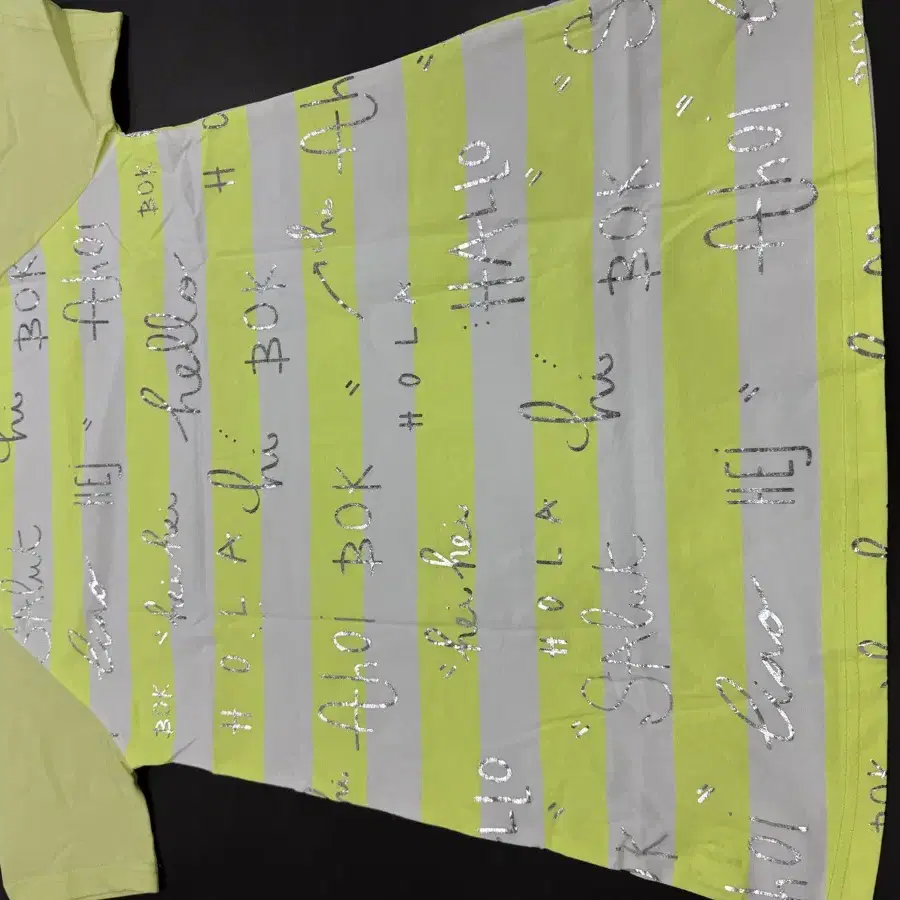 hi
Salut BOK
Ciao HEJ" AhOJ
BOK "hei hei hello BOK
H O L A hi... BOK H O
hi AhOJ BOK " hi Ah
H O L A
"hei hei
LLO HALLO
H O L A hi...
Salut BOK
hOJ Ciao HEJ" AhOJ